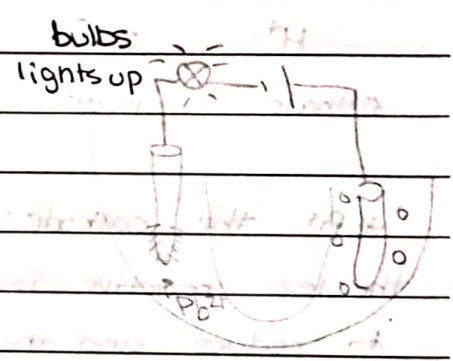 bulbs
lights up
Pb²⁺